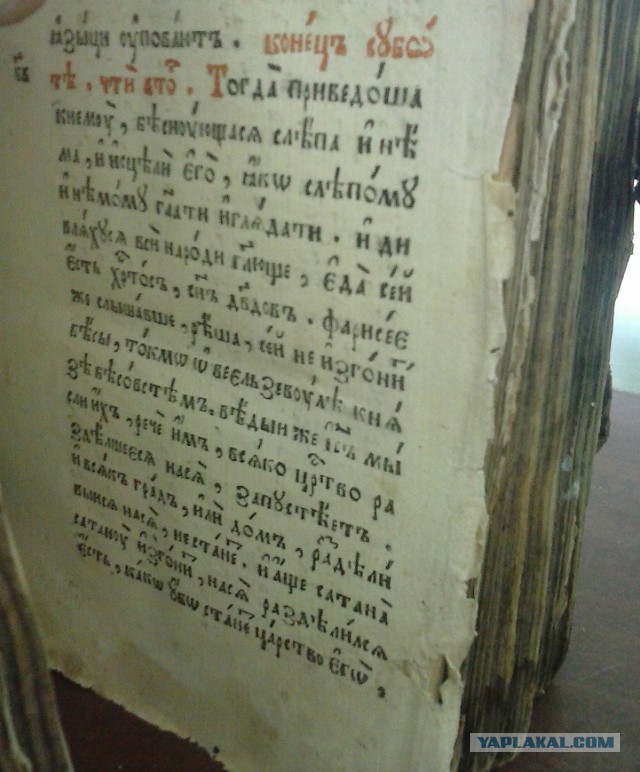 ꙗ҆зы́цы ᲂу҆пова́ютъ . коне́цъ сꙋбѡ́
тѣ . чтѝ вто҇ . Тогда̀ приведо́ша
кнемꙋ̀ , бѣснꙋ́ющасѧ слѣ́па и҆ нѣ́
ма , и҆ и҆сцѣлѝ є҆го̀ , ꙗ҆́кѡ слѣпо́мꙋ
и҆ нѣ́момꙋ гл҃ати и҆ глѧ́дати . и҆ ди
влѧ́хꙋсѧ всѝ наро́ди гл҃юще , є҆да̀ се́й
є҆́сть хр҇то́съ , сн҃ъ дв҃довъ . фарисе́є
же слы́шавше , рѣ́ша , се́й не и҆зго́ни́т
бѣ́сы , то́кмѡ ѡ҆ веєльзевꙋ́лѣ кнѧ́
зѣ бѣсо́встѣмъ . вѣ́дый же і҆с҃ъ мы́
сли и҆́хъ , речѐ и҆̀мъ , всѧ́ко цр҇тво ра
здѣ́лшееєсѧ насѧ̀ , запꙋстѣ́етъ .
и҆ всѧ́къ гра́дъ , и҆лѝ до́мъ , раздѣли́
выисѧ насѧ̀ , неста́не . и҆ а҆́ще сатана̀
сатанꙋ̀ и҆зго́нит , насѧ̀ раздѣли́лсѧ
є҆́сть , ка́кѡ ᲂу҆́бѡ ста́не ца́рство є҆гѡ̀ ,
YAPLAKAL.COM